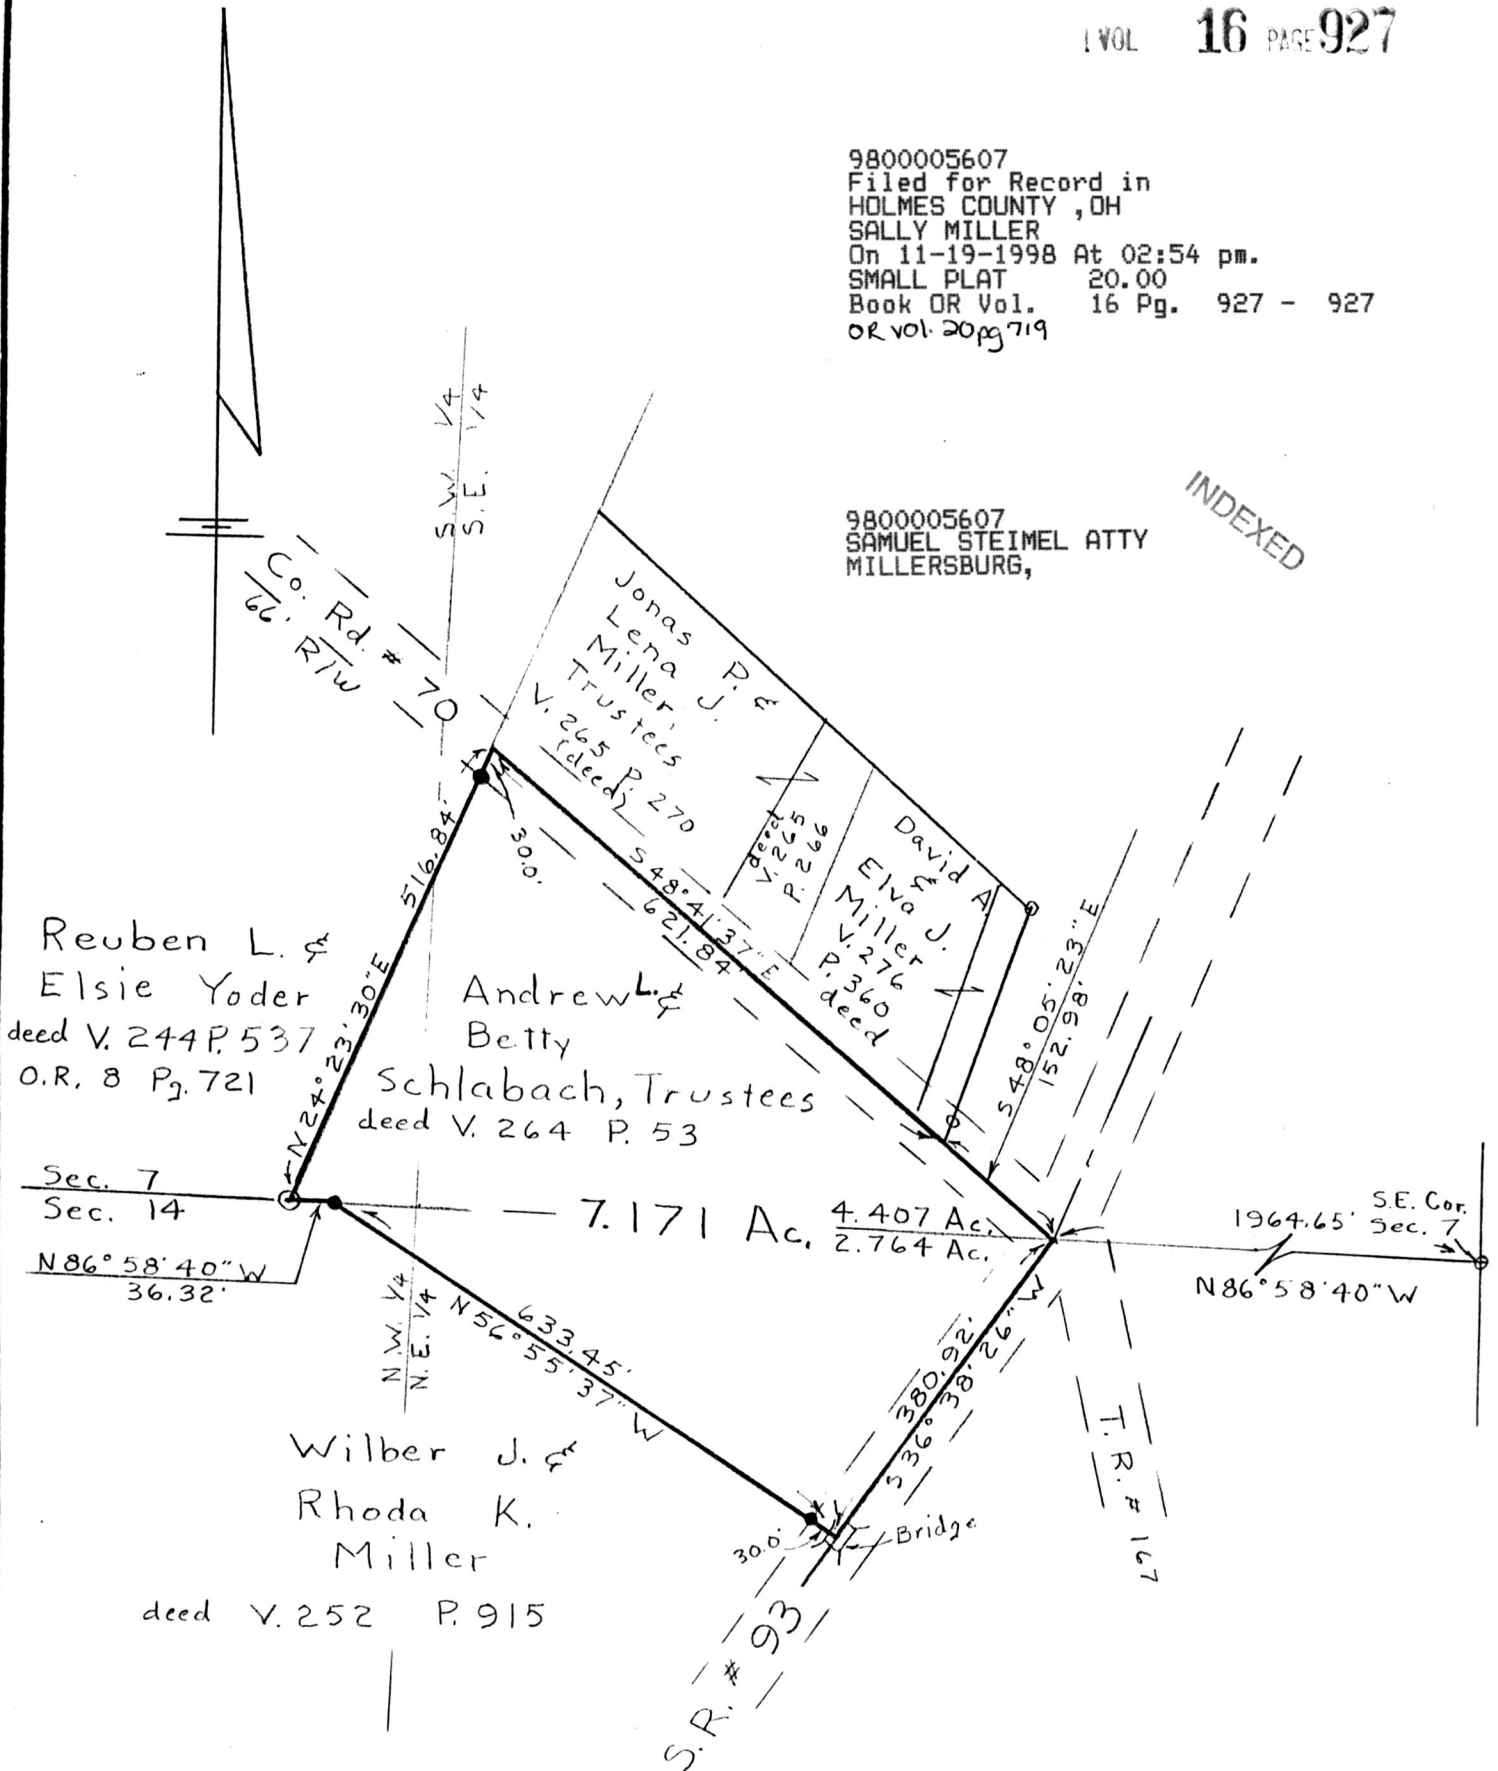 I VOL 16 PAGE 927
9800005607
Filed for Record in
HOLMES COUNTY ,OH
SALLY MILLER
On 11-19-1998 At 02:54 pm.
SMALL PLAT 20.00
Book OR Vol. 16 Pg. 927 - 927
OR vol. 20 pg 719
INDEXED
9800005607
SAMUEL STEIMEL ATTY
MILLERSBURG,
S.W. 1/4
S.E. 1/4
Co. Rd. # 70
66' R/W
Jonas P. &
Lena J.
Miller,
Trustees
V. 265 P. 270
(deed)
deed
V. 265
P. 266
David A.
&
Elva J.
Miller
V. 276
P. 360
deed
30.0'
516.84'
N 24° 23' 30" E
S 48° 41' 37" E
621.84'
S 48° 05' 23" E
152.98'
Reuben L. &
Elsie Yoder
deed V. 244 P. 537
O.R. 8 Pg. 721
Andrew L. &
Betty
Schlabach, Trustees
deed V. 264 P. 53
Sec. 7
Sec. 14
N 86° 58' 40" W
36.32'
7.171 Ac.
4.407 Ac.
2.764 Ac.
1964.65'
N 86° 58' 40" W
S.E. Cor.
Sec. 7
N.W. 1/4
N.E. 1/4
633.45'
N 56° 55' 37" W
380.92'
S 36° 38' 26" W
T.R. # 167
Wilber J. &
Rhoda K.
Miller
deed V. 252 P. 915
30.0'
Bridge
S.R. # 93